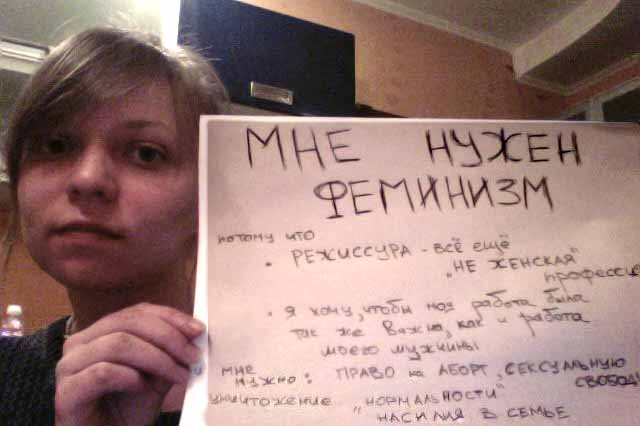 МНЕ НУЖЕН
ФЕМИНИЗМ
потому что
• РЕЖИССУРА - всё ещё
"НЕ ЖЕНСКАЯ"
професси
• Я хочу, чтобы моя работа была
так же важна, как и работа
моего мужчины
мне
нужно: ПРАВО на АБОРТ, СЕКСУАЛЬНУЮ
СВОБОД
УНИЧТОЖЕНИЕ "НОРМАЛЬНОСТИ"
НАСИЛИЯ В СЕМЬЕ